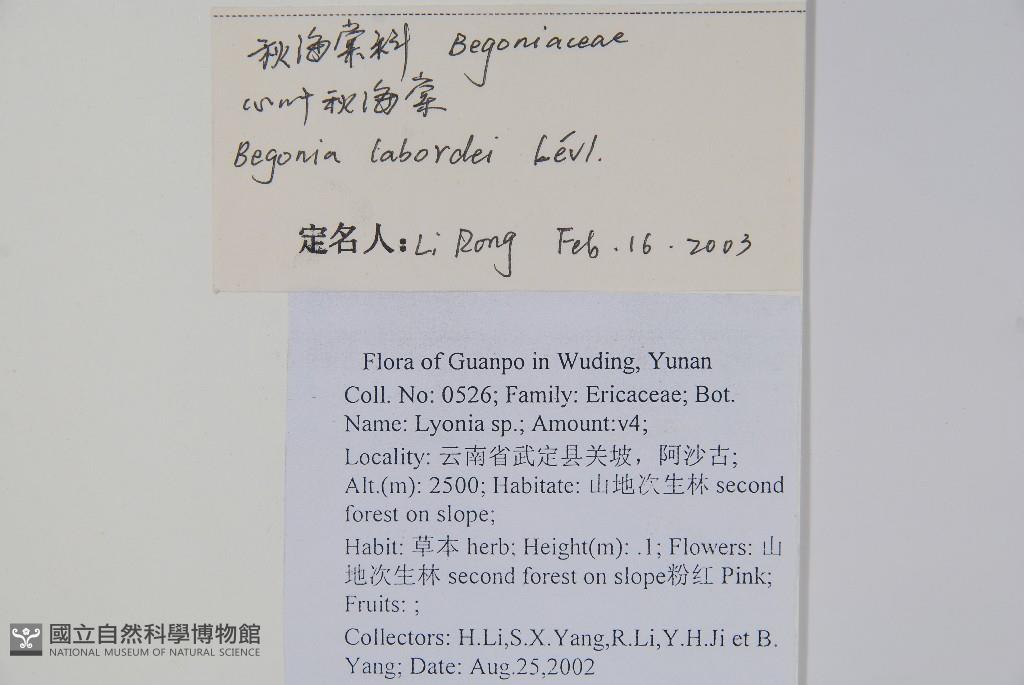 秋海棠科 Begoniaceae
心叶秋海棠
Begonia labordei Lévl.
定名人: Li Rong Feb. 16. 2003
Flora of Guanpo in Wuding, Yunan
Coll. No: 0526; Family: Ericaceae; Bot.
Name: Lyonia sp.; Amount:v4;
Locality: 云南省武定县关坡，阿沙古;
Alt.(m): 2500; Habitate: 山地次生林 second
forest on slope;
Habit: 草本 herb; Height(m): .1; Flowers: 山
地次生林 second forest on slope粉红 Pink;
Fruits: ;
Collectors: H.Li,S.X.Yang,R.Li,Y.H.Ji et B.
Yang; Date: Aug.25,2002
國立自然科學博物館
NATIONAL MUSEUM OF NATURAL SCIENCE